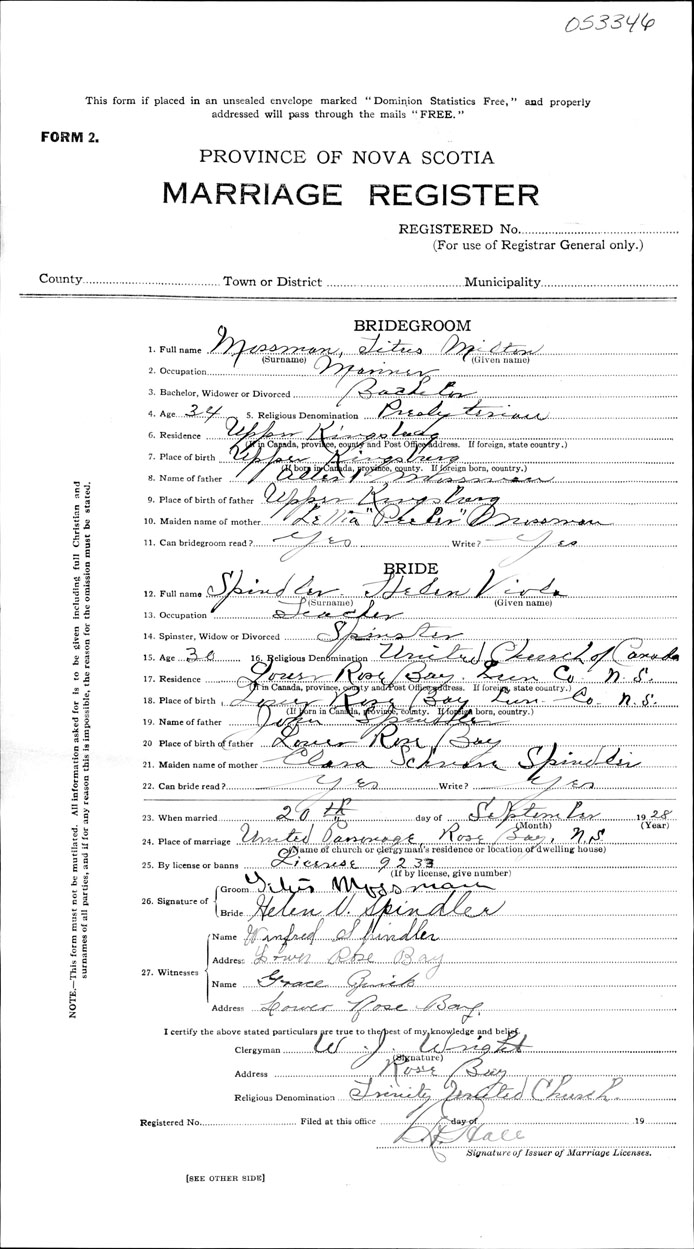 053346
This form if placed in an unsealed envelope marked "Dominion Statistics Free," and properly
addressed will pass through the mails "FREE."
FORM 2.
PROVINCE OF NOVA SCOTIA
MARRIAGE REGISTER
REGISTERED No.
(For use of Registrar General only.)
County Town or District Municipality
BRIDEGROOM
1. Full name Mossman, Titus Milton
(Surname) (Given name)
2. Occupation Mariner
3. Bachelor, Widower or Divorced Bachelor
4. Age 34 5. Religious Denomination Presbyterian
6. Residence Upper Kingsburg
(If in Canada, province, county and Post Office address. If foreign, state country.)
7. Place of birth Upper Kingsburg
(If born in Canada, province, county. If foreign born, country.)
8. Name of father Mossman
9. Place of birth of father Upper Kingsburg
10. Maiden name of mother Mossman
11. Can bridegroom read? Yes Write? Yes
BRIDE
12. Full name Spindler Helen Viola
(Surname) (Given name)
13. Occupation Teacher
14. Spinster, Widow or Divorced Spinster
15. Age 30 16. Religious Denomination United Church of Canada
17. Residence Lower Rose Bay, Lun Co. N.S.
(If in Canada, province, county and Post Office address. If foreign, state country.)
18. Place of birth Lower Rose Bay Lun. Co. N.S.
(If born in Canada, province, county. If foreign born, country.)
19. Name of father John Spindler
20 Place of birth of father Lower Rose Bay
21. Maiden name of mother Clara Spindler
22. Can bride read? Yes Write? Yes
23. When married 20th day of September 1928
(Month) (Year)
24. Place of marriage United Parsonage, Rose Bay, N.S
(Name of church or clergyman's residence or location of dwelling house)
25. By license or banns License 9233
(If by license, give number)
26. Signature of Groom Titus Mossman
Bride Helen V. Spindler
27. Witnesses Name Winfred Spindler
Address Lower Rose Bay
Name Grace
Address Lower Rose Bay,
I certify the above stated particulars are true to the best of my knowledge and belief.
Clergyman W. J. Wright
(Signature)
Address Rose Bay
Religious Denomination Trinity United Church.
Registered No. Filed at this office day of 19
Signature of Issuer of Marriage Licenses.
[SEE OTHER SIDE]
NOTE.—This form must not be mutilated. All information asked for is to be given including full Christian and
surnames of all parties, and if for any reason this is impossible, the reason for the omission must be stated.